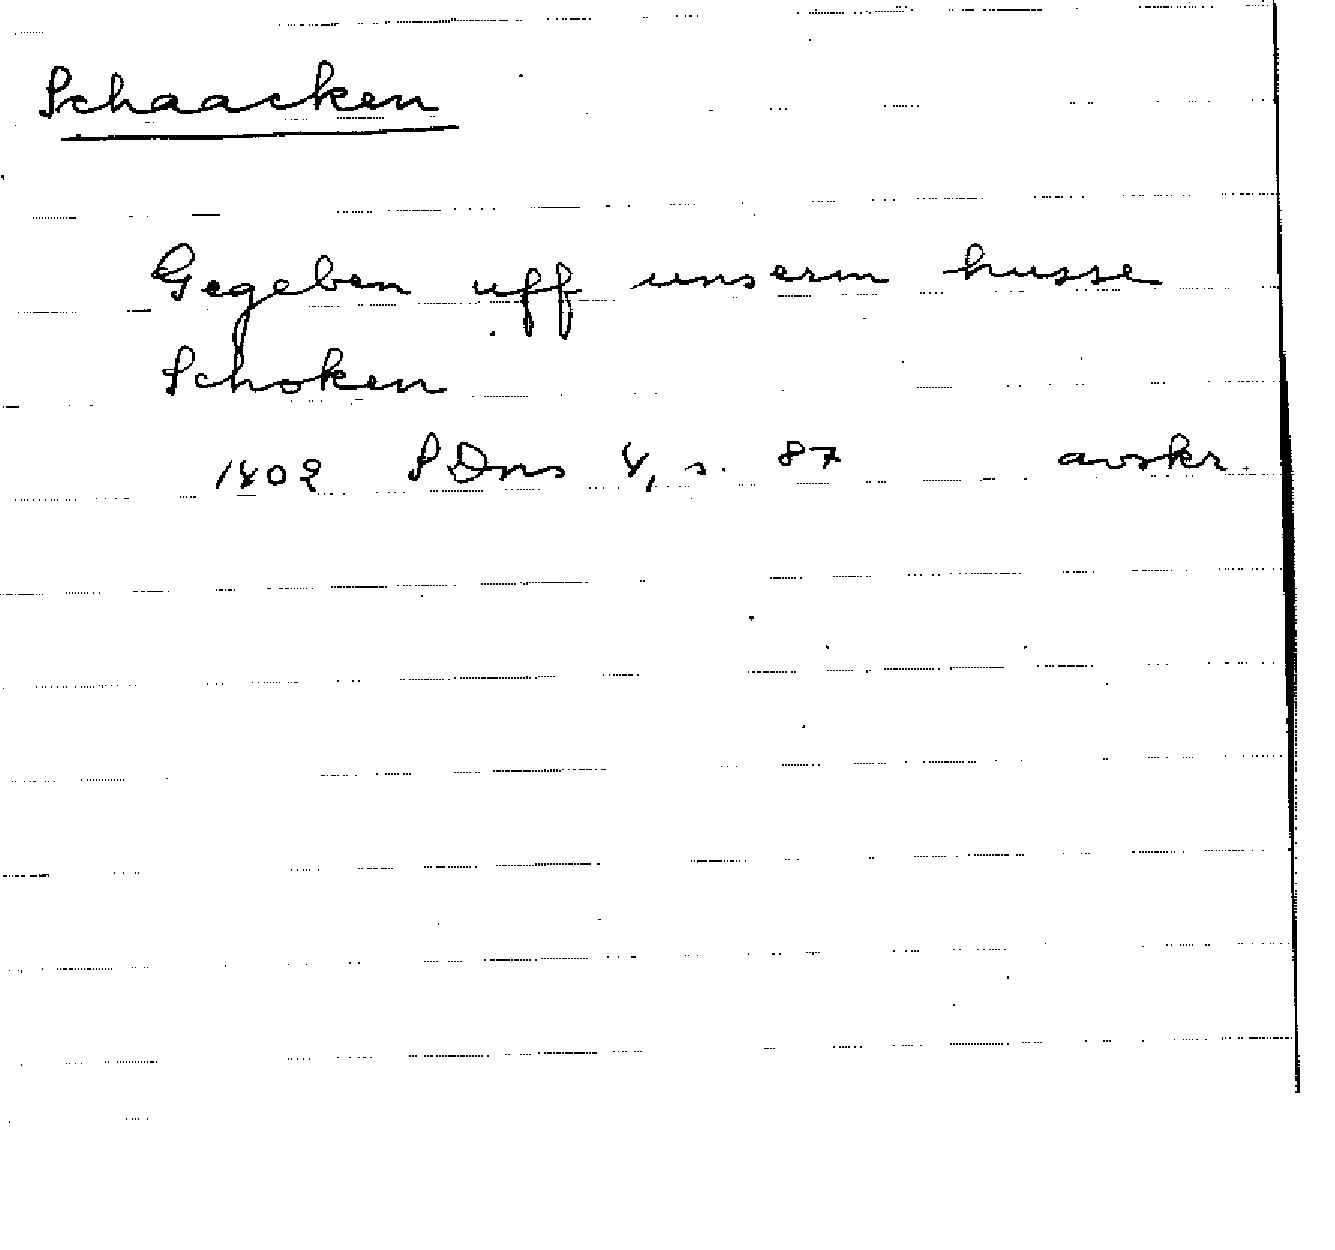 Schaacken
Gegeben uff unserm husse
Schoken
1402 SDns 4, s. 87 avskr.